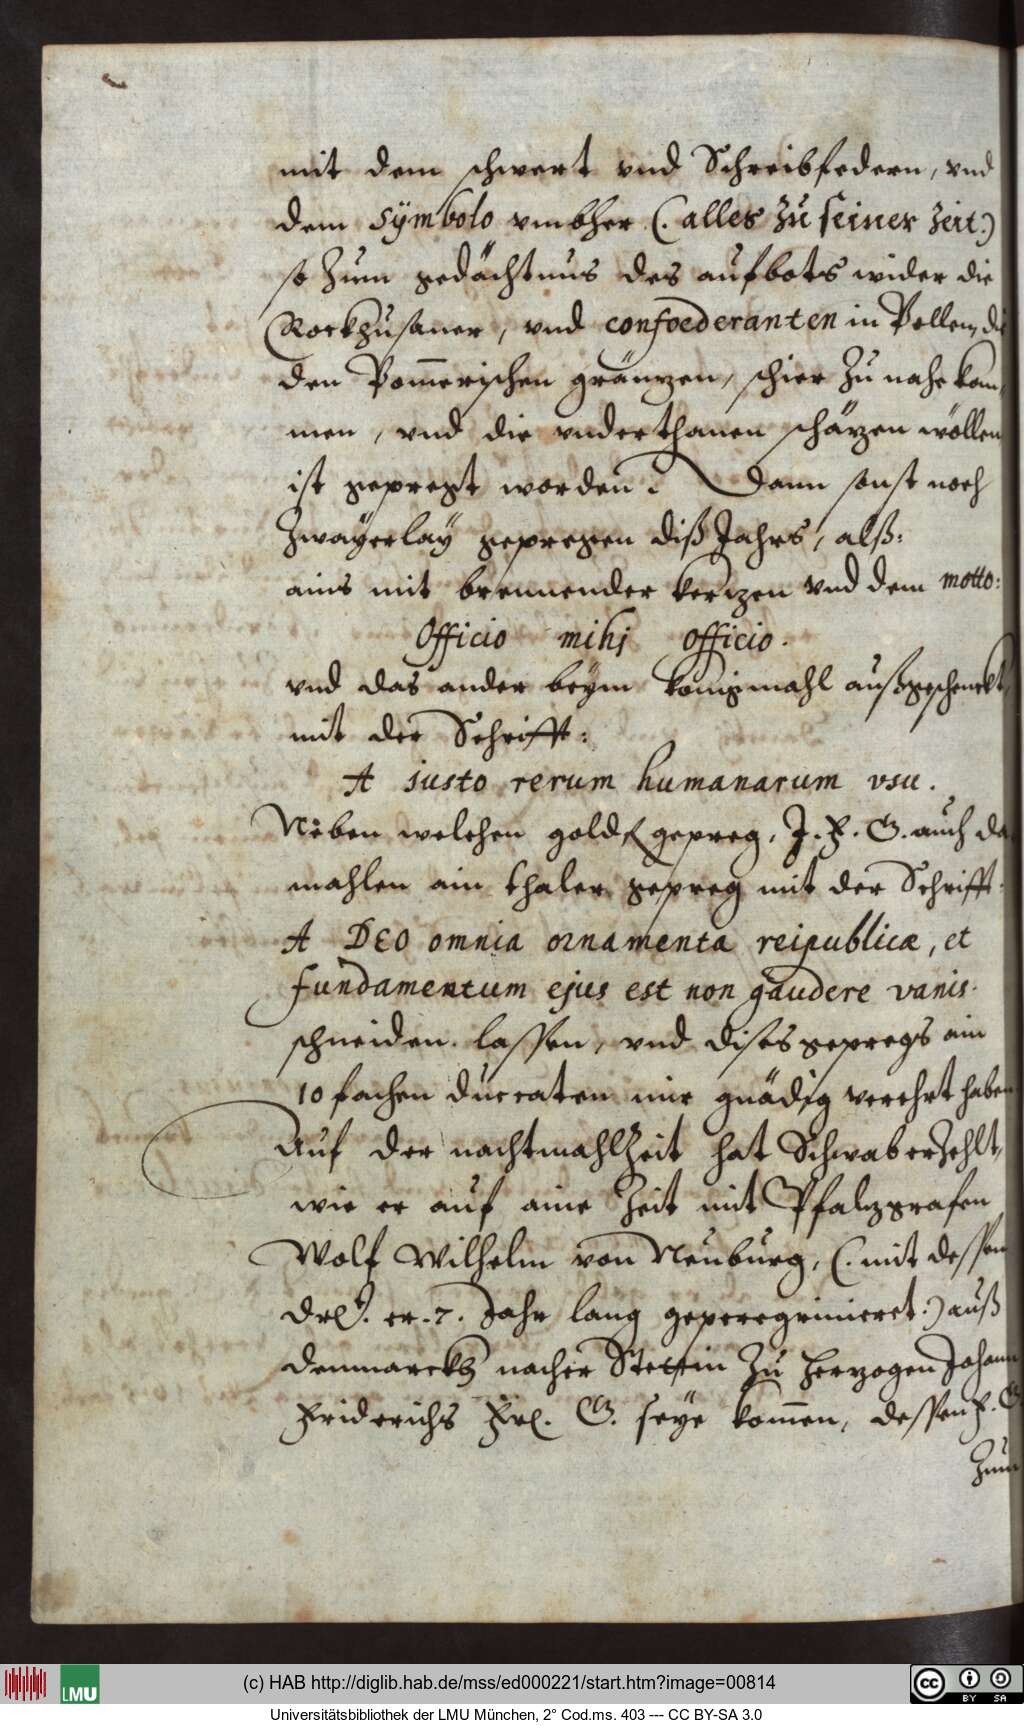 mit dem schwert vnd Schreibfedern, vnd
dem Sÿmbolo vmbher (. alles zu seiner zeit.)
so zum gedächtnus des aufbots wider die
Rockhusaner, vnd confoederanten in Pollen, die
den Pom̄erischen gräntzen, schier zu nahe kom¬
men, vnd die vnderthanen schätzen wöllen
ist gepregt worden. Dann sonst noch
zwayerlaÿ gepregen diß Jahrs, alß:
ains mit brennender kertzen vnd dem motto:
Officio mihj officio.
vnd das ander beÿm königmahl außgeschenckt,
mit der Schrifft:
A justo rerum humanarum vsu.
Neben welchen gepreg, J. F. G. auch da
mahlen ain thaler gepreg mit der Schrifft:
A DEO omnia ornamenta reipublicæ, et
fundamentum ejus est non gaudere vanis.
schneiden lassen, vnd dises gepregs ain
10 fachen duccaten mir gnädig verehrt haben
Auf der nachtmahlzeit hat Schwab erzehlt,
wie er auf aine zeit mit Pfaltzgrafen
Wolf Wilhelm von Neuburg, (. mit dessen
er .7. Jahr lang geperegrinieret .) auß
dennmarckh nacher Stettin zu hertzogen Johann
Friderichs Frl. G. seye kom̄en, dessen F. G.
zum
(c) HAB http://diglib.hab.de/mss/ed000221/start.htm?image=00814
LMU
cc BY SA
Universitätsbibliothek der LMU München, 2° Cod.ms. 403 --- CC BY-SA 3.0